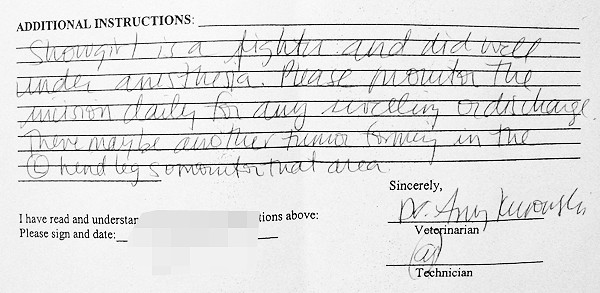 ADDITIONAL INSTRUCTIONS:
Showgirl is a fighter and did well
under anesthesia. Please monitor the
incision daily for any swelling or discharge.
There may be another tumor forming in the
Ⓛ hend leg so monitor that area.
Sincerely,
Dr. Amy Kurowski
I have read and understan tions above:
Veterinarian
Please sign and date:
Technician